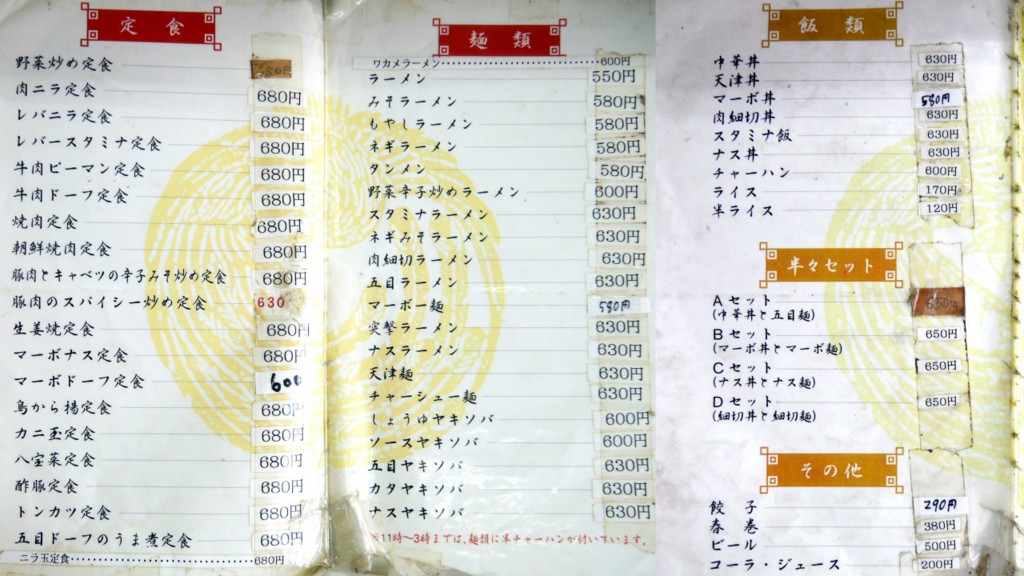 定食
野菜炒め定食
肉ニラ定食 680円
レバニラ定食 680円
レバースタミナ定食 680円
牛肉ピーマン定食 680円
牛肉ドーフ定食 680円
焼肉定食 680円
朝鮮焼肉定食 680円
豚肉とキャベツの辛子みそ炒め定食 680円
豚肉のスパイシー炒め定食 630
生姜焼定食 680円
マーボナス定食 680円
マーボドーフ定食 600
鳥から揚定食 680円
カニ玉定食 680円
八宝菜定食 680円
酢豚定食 680円
トンカツ定食 680円
五目ドーフのうま煮定食 680円
ニラ玉定食 680円
麺類
ワカメラーメン 600円
ラーメン 550円
みそラーメン 580円
もやしラーメン 580円
ネギラーメン 580円
タンメン 580円
野菜辛子炒めラーメン 600円
スタミナラーメン 630円
ネギみそラーメン 630円
肉細切ラーメン 630円
五目ラーメン 630円
マーボー麺 580円
突撃ラーメン 630円
ナスラーメン 630円
天津麺 630円
チャーシュー麺 630円
しょうゆヤキソバ 600円
ソースヤキソバ 600円
五目ヤキソバ 630円
カタヤキソバ 630円
ナスヤキソバ 630円
※11時〜3時までは、麺類に半チャーハンが付いています。
飯類
中華丼 630円
天津丼 630円
マーボ丼 580円
肉細切丼 630円
スタミナ飯 630円
ナス丼 630円
チャーハン 600円
ライス 170円
半ライス 120円
半々セット
Aセット 650円
(中華丼と五目麺)
Bセット 650円
(マーボ丼とマーボ麺)
Cセット 650円
(ナス丼とナス麺)
Dセット 650円
(細切丼と細切麺)
その他
餃子 290円
春巻 380円
ビール 500円
コーラ・ジュース 200円